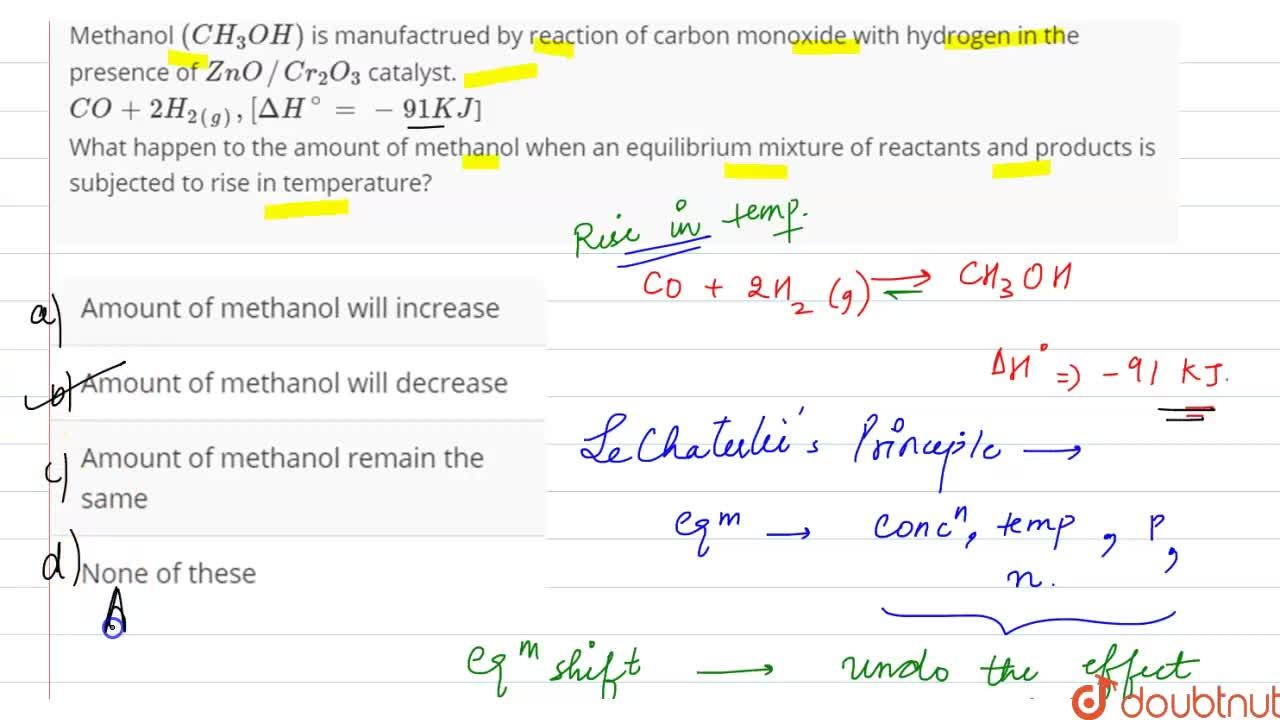 Methanol (CH₃OH) is manufactrued by reaction of carbon monoxide with hydrogen in the
presence of ZnO/Cr₂O₃ catalyst.
CO + 2H₂₍g₎, [ΔH° = − 91KJ]
What happen to the amount of methanol when an equilibrium mixture of reactants and products is
subjected to rise in temperature?
Rise in temp.
CO + 2H₂ (g) ⇌ CH₃OH
a) Amount of methanol will increase
ΔH° ⇒ −91 KJ.
b) Amount of methanol will decrease
LeChatelie's Principle →
c) Amount of methanol remain the
same
eqᵐ → concⁿ, temp, P,
n.
d) None of these
A
eqᵐ shift → undo the effect
doubtnut